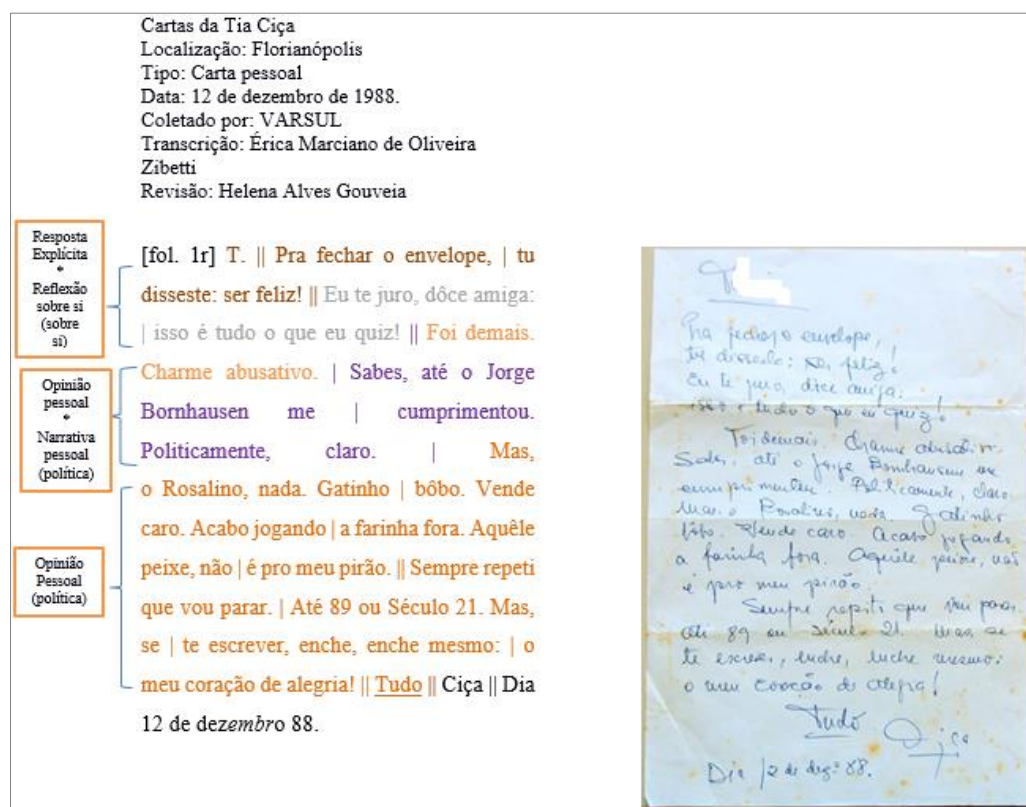 Cartas da Tia Ciça
Localização: Florianópolis
Tipo: Carta pessoal
Data: 12 de dezembro de 1988.
Coletado por: VARSUL
Transcrição: Érica Marciano de Oliveira
Zibetti
Revisão: Helena Alves Gouveia
Resposta
Explícita
*
Reflexão
sobre si
(sobre
si)
Opinião
pessoal
*
Narrativa
pessoal
(política)
Opinião
Pessoal
(política)
[fol. 1r] T. || Pra fechar o envelope, | tu
disseste: ser feliz! || Eu te juro, dôce amiga:
| isso é tudo o que eu quiz! || Foi demais.
Charme abusativo. | Sabes, até o Jorge
Bornhausen me | cumprimentou.
Politicamente, claro. | Mas,
o Rosalino, nada. Gatinho | bôbo. Vende
caro. Acabo jogando | a farinha fora. Aquêle
peixe, não | é pro meu pirão. || Sempre repeti
que vou parar. | Até 89 ou Século 21. Mas,
se | te escrever, enche, enche mesmo: | o
meu coração de alegria! || Tudo || Ciça || Dia
12 de dezembro 88.
T.
Pra fechar o envelope,
tu disseste: ser feliz!
Eu te juro, dôce amiga:
isso é tudo o que eu quiz!
Foi demais. Charme abusativo.
Sabes, até o Jorge Bornhausen me
cumprimentou. Politicamente, claro.
Mas, o Rosalino, nada. Gatinho
bôbo. Vende caro. Acabo jogando
a farinha fora. Aquêle peixe, não
é pro meu pirão.
Sempre repeti que vou parar.
Até 89 ou Século 21. Mas, se
te escrever, enche, enche mesmo:
o meu coração de alegria!
Tudo
Ciça
Dia 12 de dezº 88.